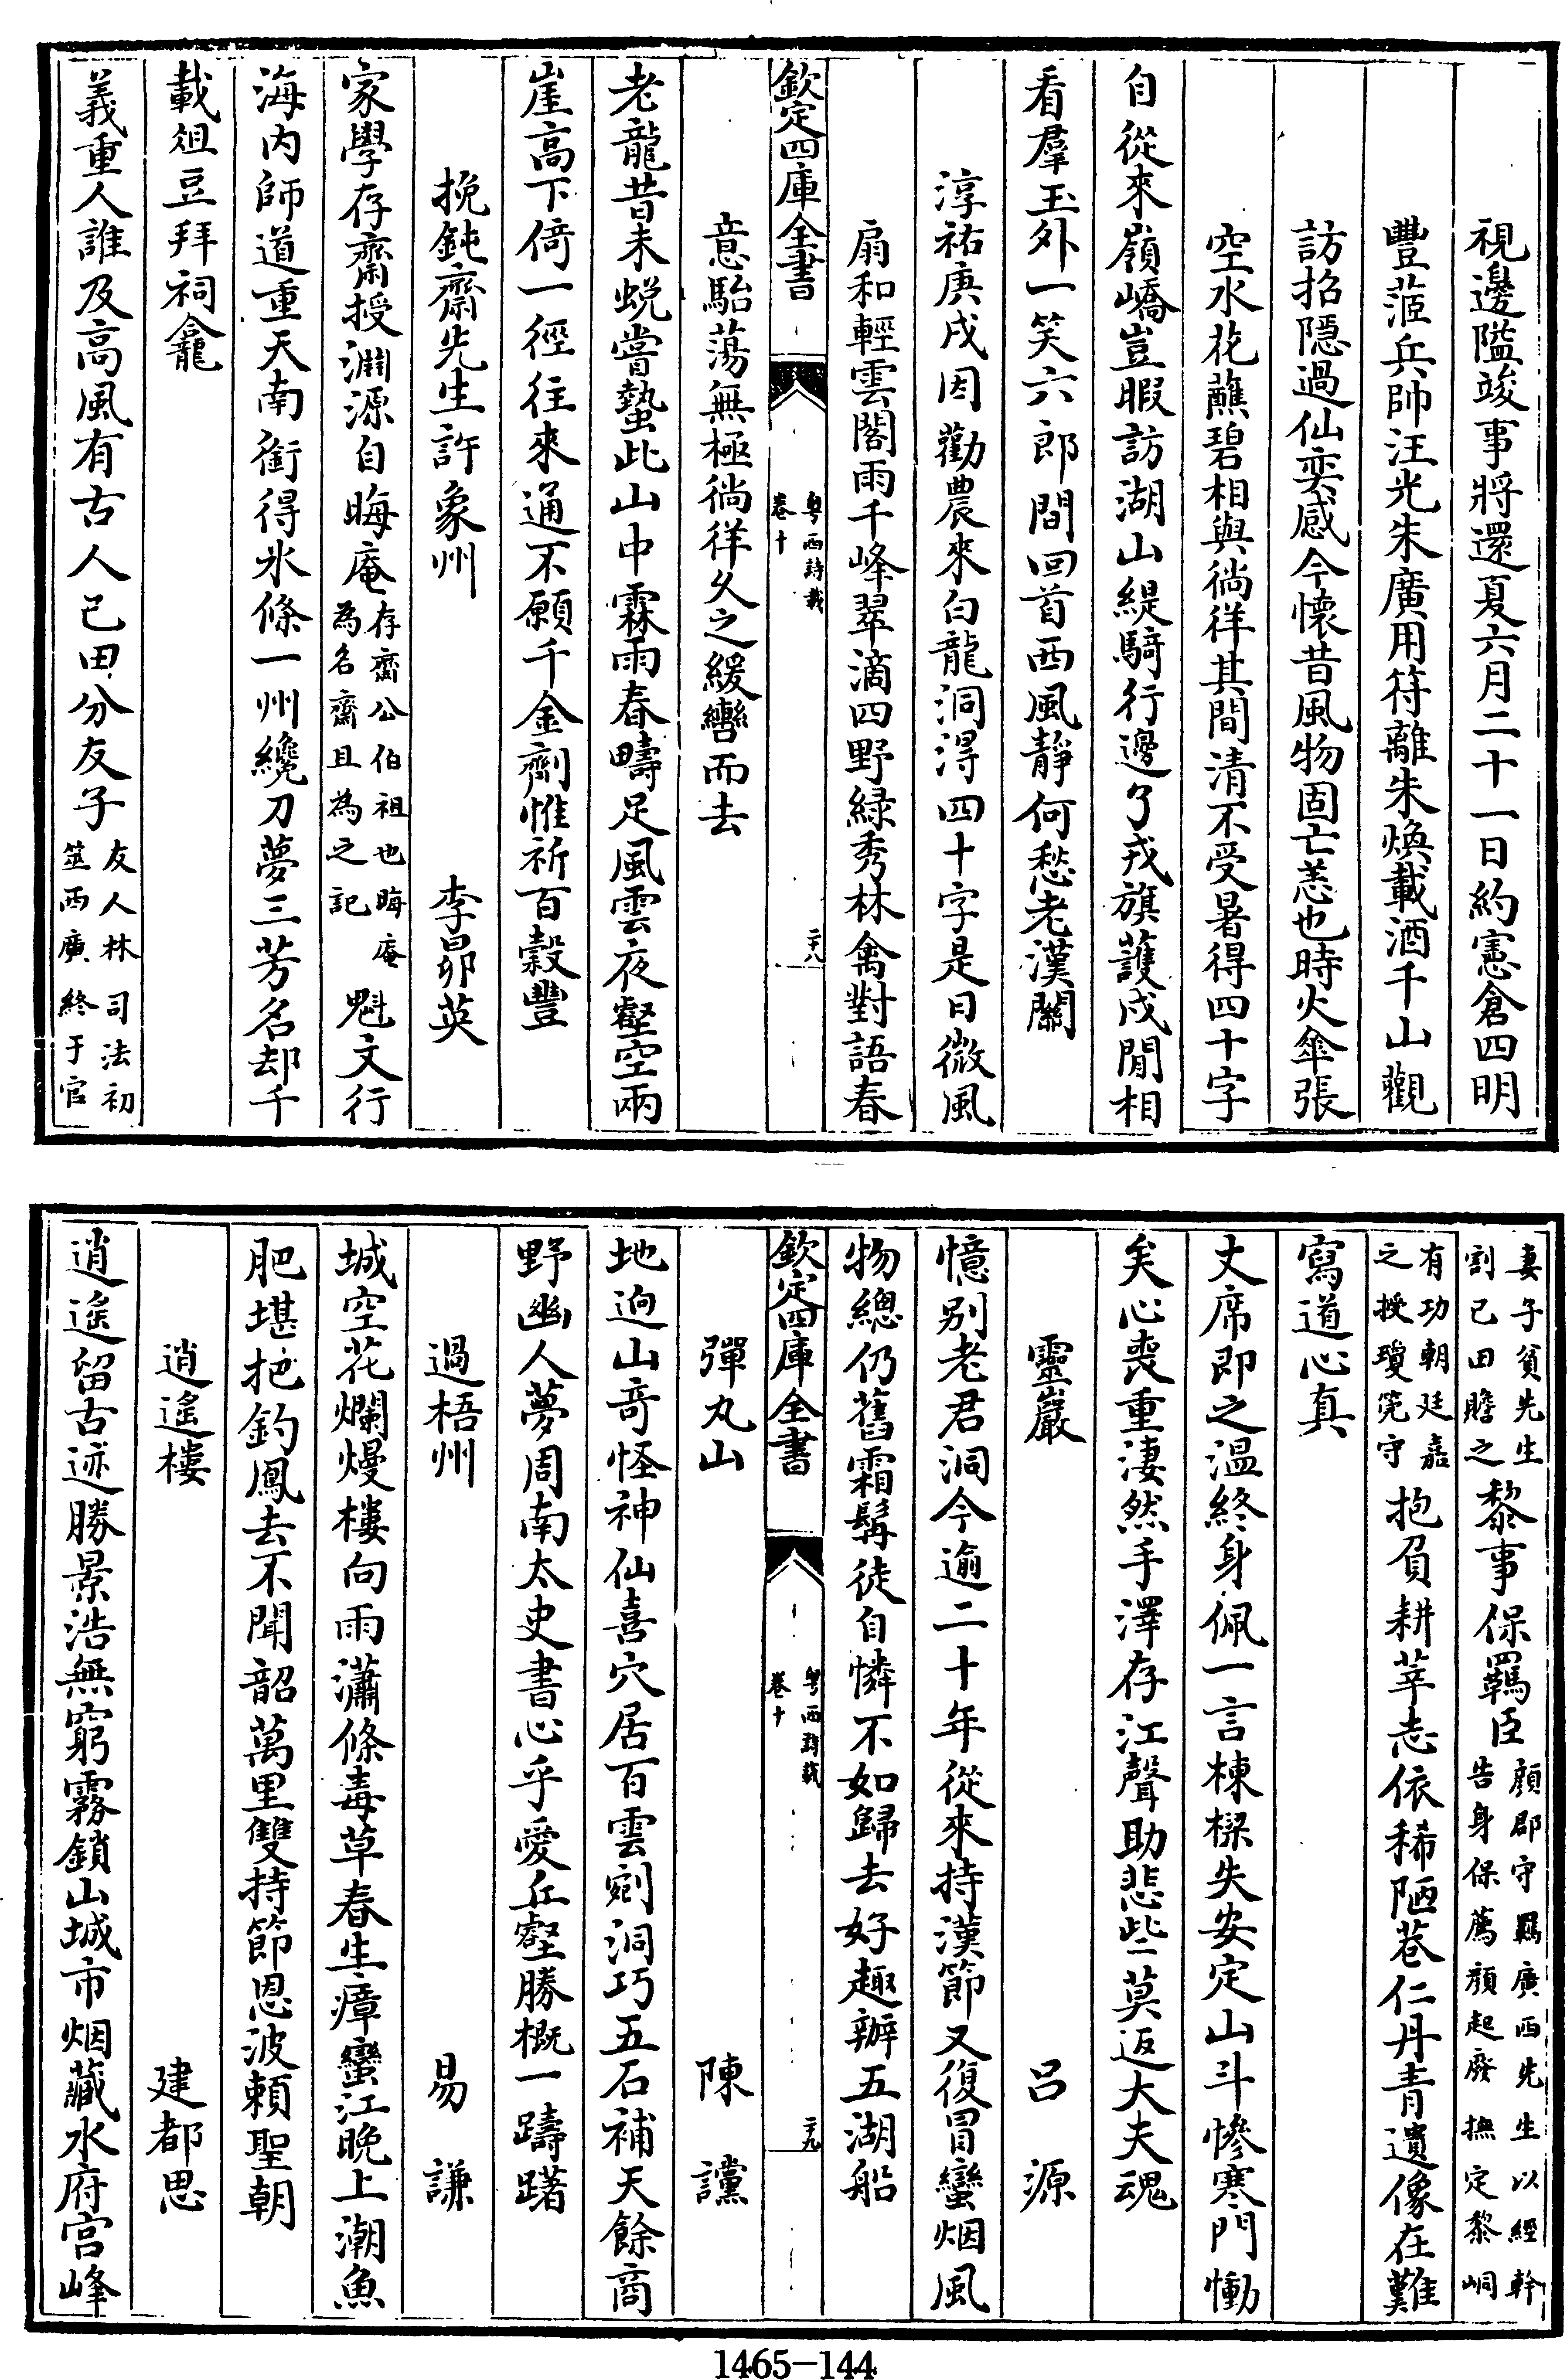 視邊隘竣事將還夏六月二十一日約憲倉四明
豐蒞兵帥汪光朱廣用符離朱煥載酒千山觀
訪招隱過仙奕感今懷昔風物固亡恙也時火傘張
空水花蘸碧相與徜徉其間清不受暑得四十字
自從來嶺嶠豈暇訪湖山緹騎行邊了戎旗護戍閒相
看羣玉外一笑六郎間回首西風靜何愁老漢關
淳祐庚戌因勸農來白龍洞得四十字是日微風
扇和輕雲閣雨千峰翠滴四野綠秀林禽對語春
欽定四庫全書
粤西詩載
卷十
二十八
意駘蕩無極徜徉久之緩轡而去
老龍昔未蛻嘗蟄此山中霖雨春疇足風雲夜壑空兩
崖高下倚一徑往來通不願千金劑惟祈百穀豐
挽鈍齋先生許象州 李昴英
家學存齋授淵源自晦庵存齋公伯祖也晦庵為名齋且為之記魁文行
海内師道重天南銜得氷條一州纔刀夢三芳名却千
載俎豆拜祠龕
義重人誰及高風有古人己田分友子友人林司法初筮西廣終于官
妻子貧先生割己田贍之黎事保羈臣顔郡守羈廣西先生以經幹告身保薦顔起廢撫定黎峒
有功朝廷嘉之授瓊筦守抱負耕莘志依稀陋巷仁丹青遺像在難
寫道心真
丈席即之溫終身佩一言棟樑失安定山斗慘寒門慟
矣心喪重淒然手澤存江聲助悲些莫返大夫魂
靈巖 呂源
憶别老君洞今逾二十年從來持漢節又復冒蠻烟風
物總仍舊霜髯徒自憐不如歸去好趣辦五湖船
欽定四庫全書
粤西詩載
卷十
二十九
彈丸山 陳讜
地迥山竒怪神仙喜穴居百雲剜洞巧五石補天餘商
野幽人夢周南太史書心乎愛丘壑勝概一躊躇
過梧州 易謙
城空花爛熳樓向雨瀟條毒草春生瘴蠻江晚上潮魚
肥堪把釣鳳去不聞韶萬里雙持節恩波賴聖朝
逍遙樓 建都思
逍遙留古迹勝景浩無窮霧鎖山城市烟藏水府宫峰
1465-144